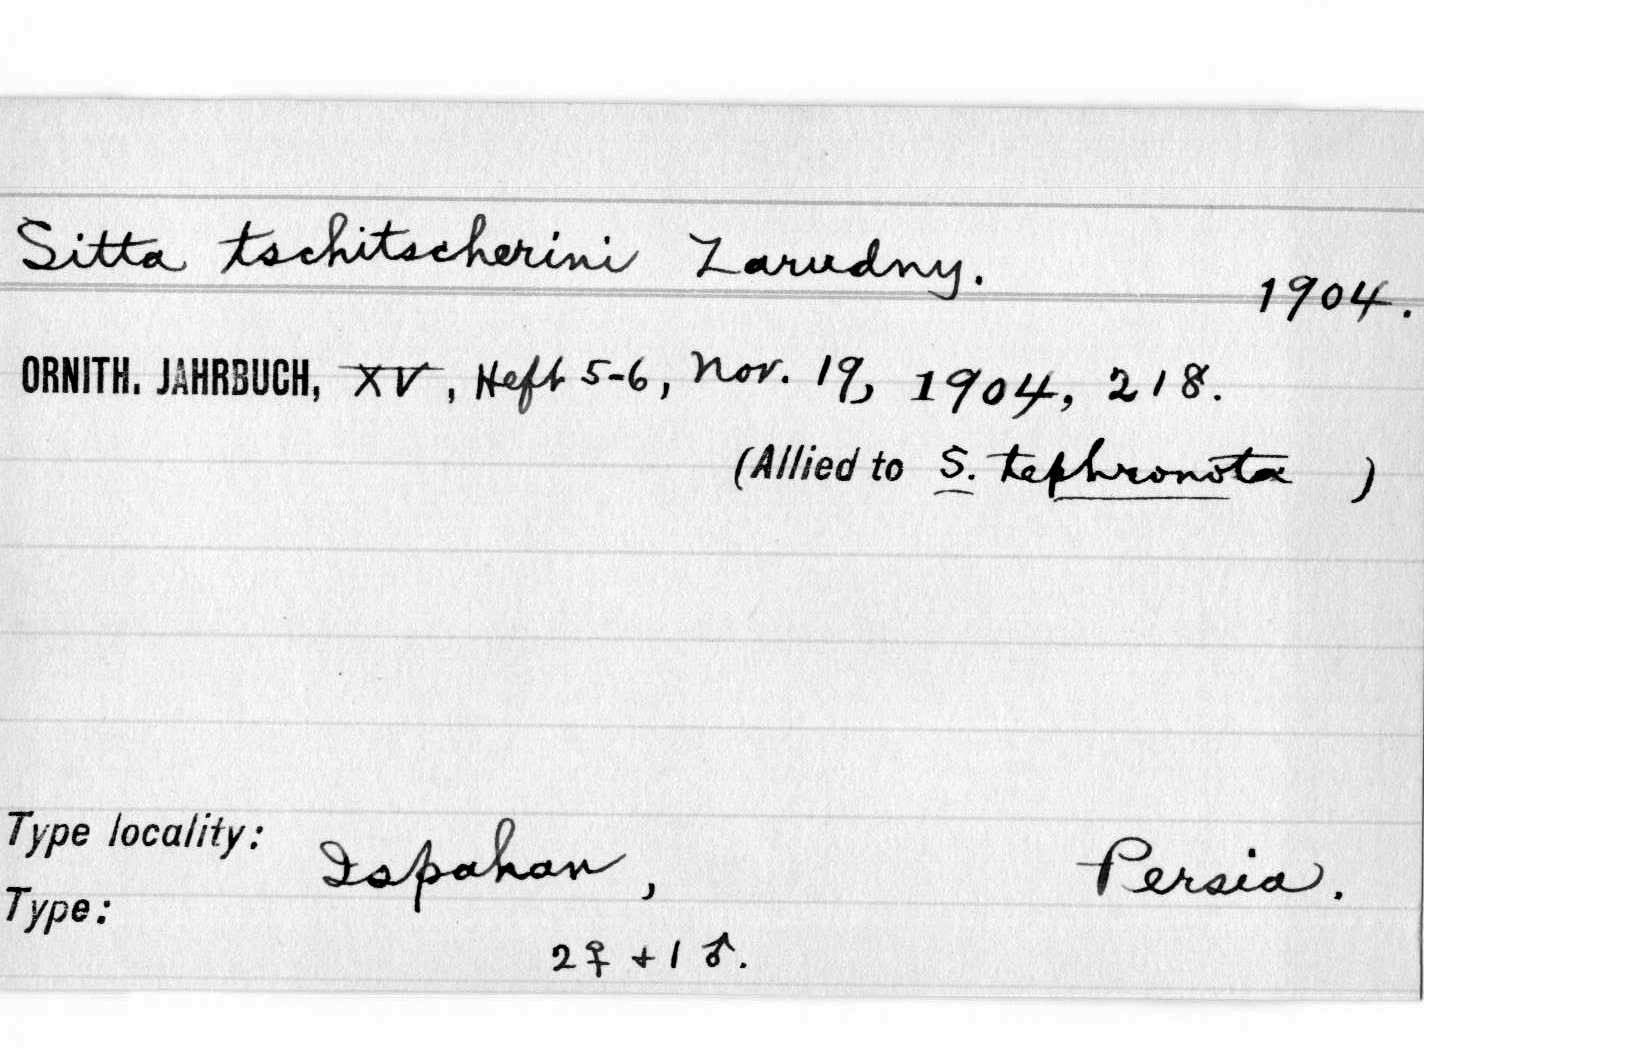 Sitta tschitscherini Zarudny.
1904.
ORNITH. JAHRBUCH, XV, Heft 5-6, Nov. 19, 1904, 218.
(Allied to S. tephronota )
Type locality: Ispahan, Persia.
Type:
2♀ + 1 ♂.